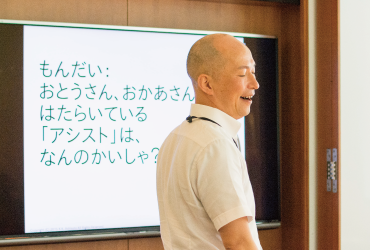 もんだい：
おとうさん、おかあさん
はたらいている
「アシスト」は、
なんのかいしゃ？